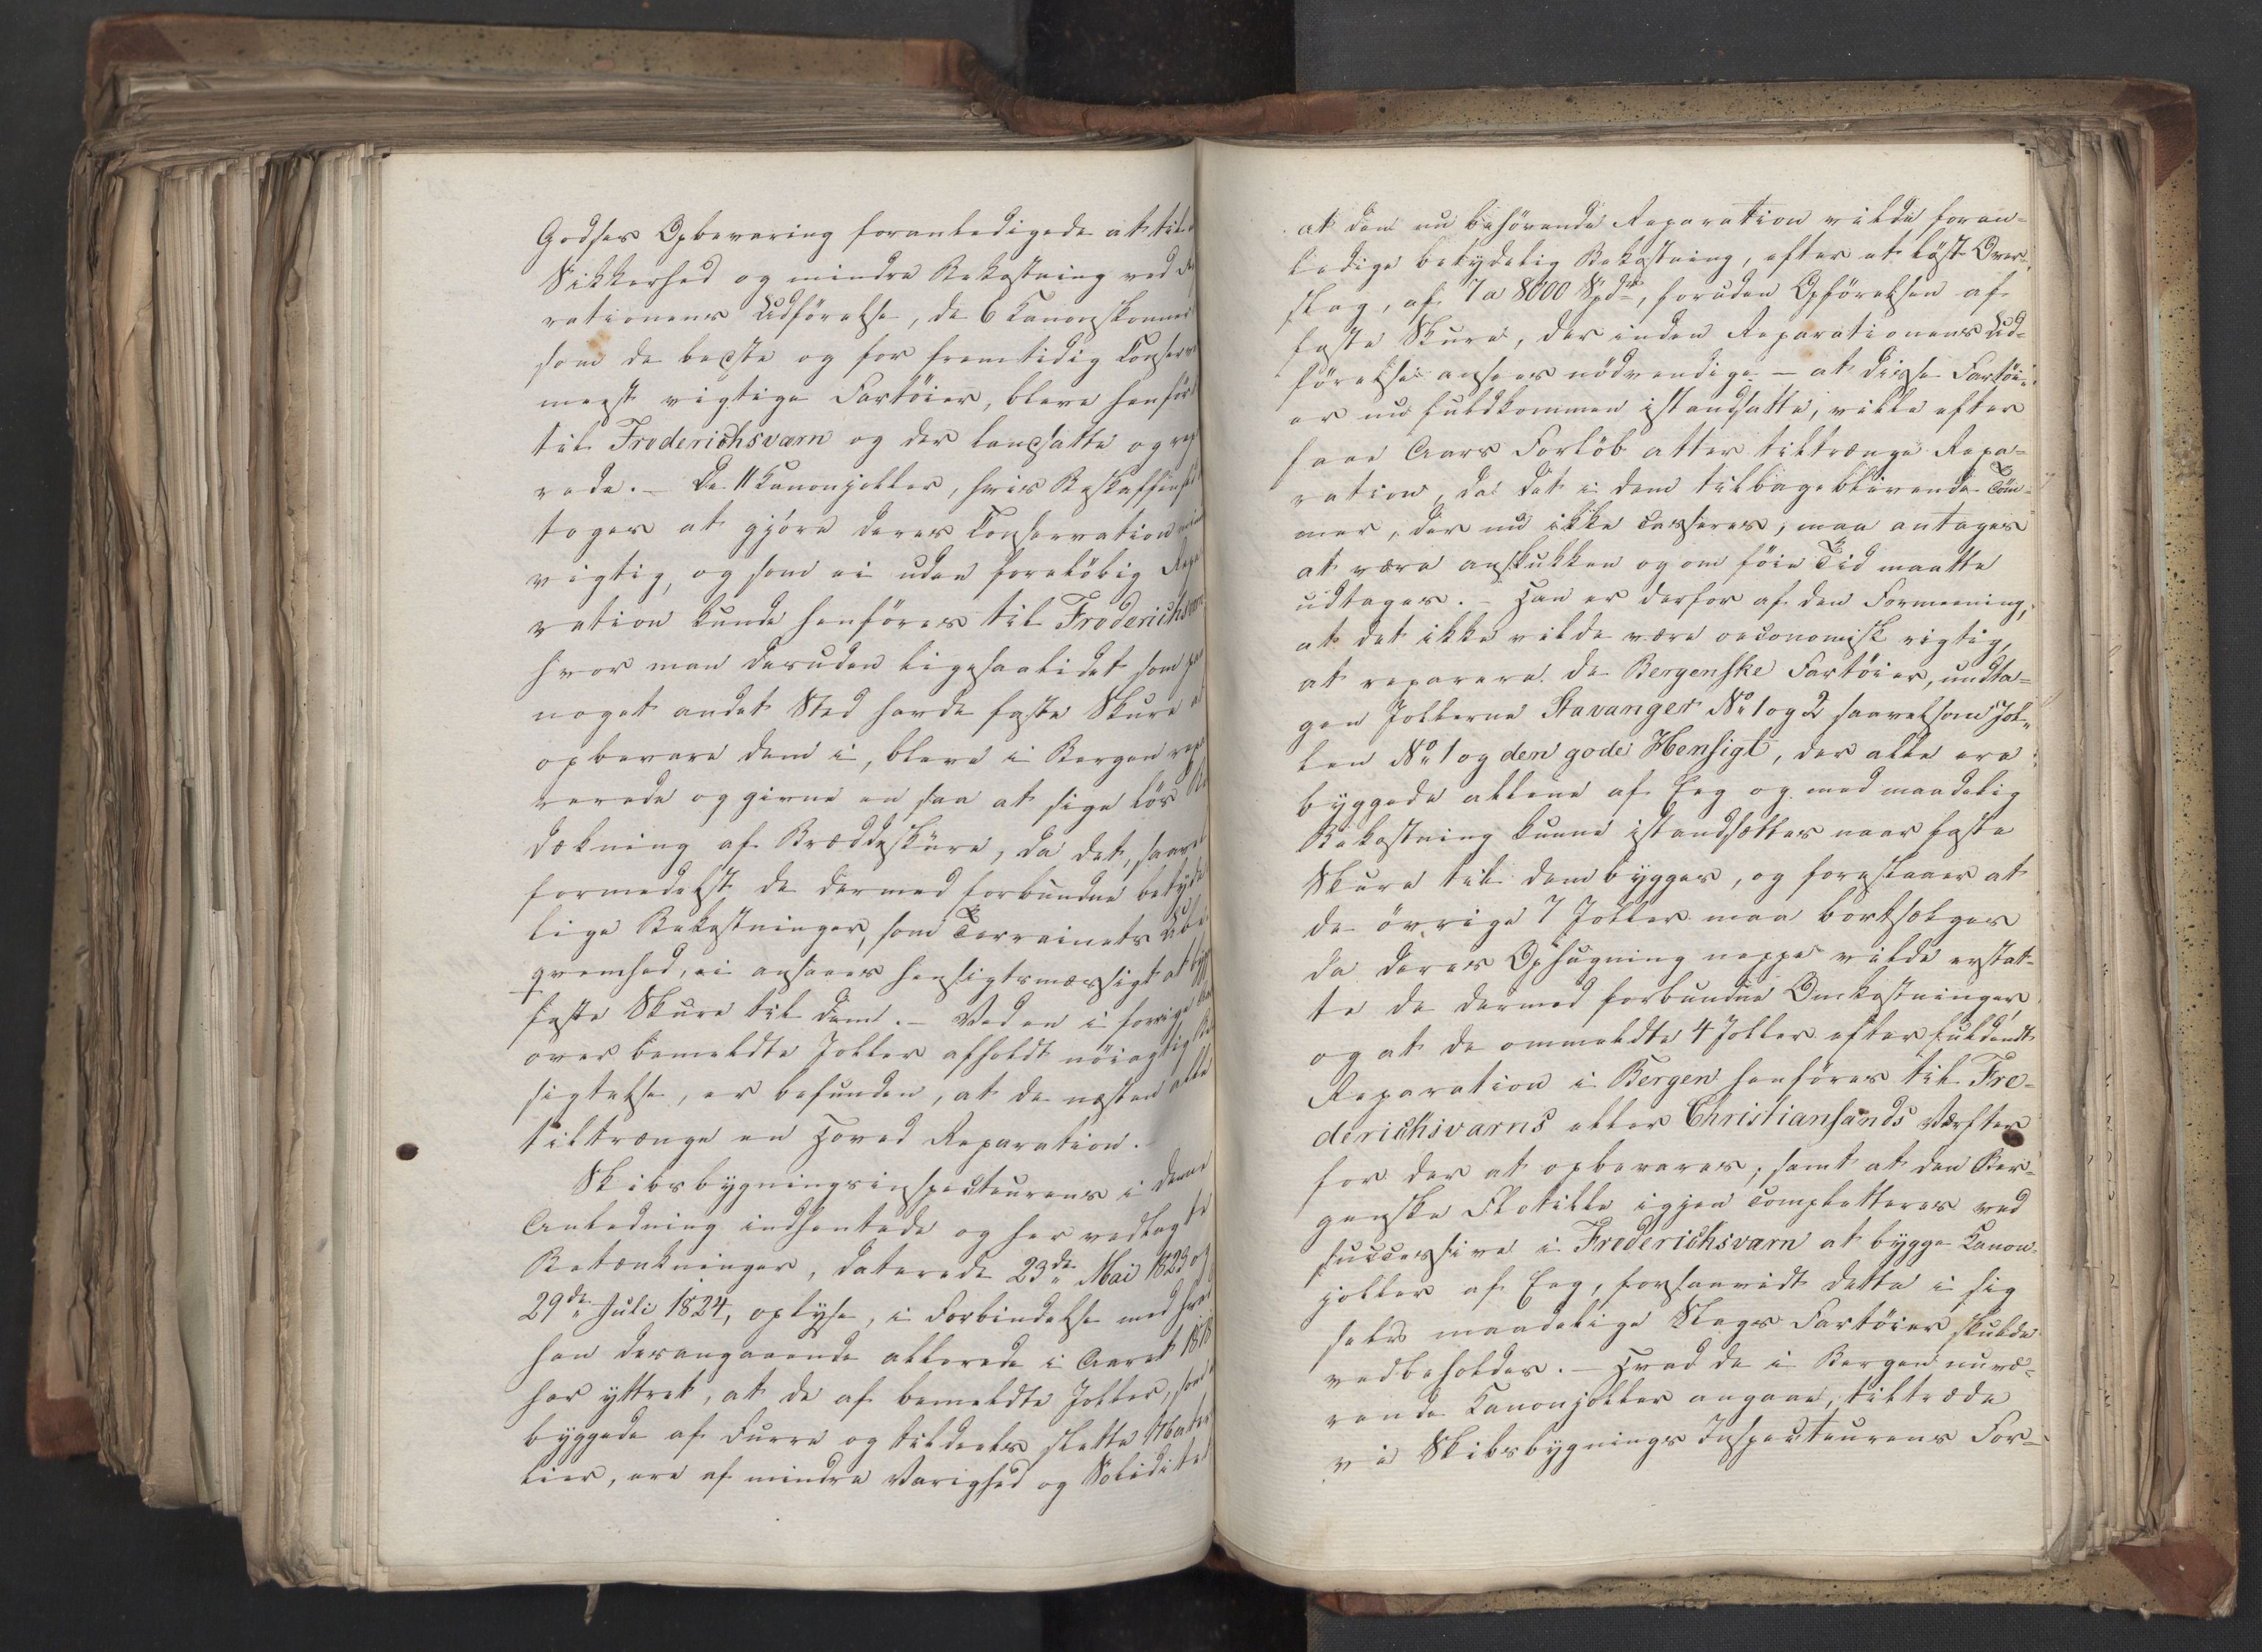 Godses Opbevaring foranledigede at til
Sikkerhed og mindre Bekostning ved
rationens Udförelse, de 6 Kanonskonner
som de bedste og for fremtidig Conserva
meest vigtige Fartöier, bleve henför
til Frederichsværn og der landsatte og rep
rede. – De 11 Kanonjoller, hvis Beskaffenhed
toges at gjöre deres Conservation min
vigtig, og som ei uden forelöbig Repa
ration kunde henföres til Frederichsværn
hvor man desuden ligesaalidet som paa
noget andet Sted havde faste Skure at
opbevare dem i, bleve i Bergen repa
rerede og givne en saa at sige lös
dækning af Bræddeskure, da det, saavel
formedelst de dermed forbundne betyde
lige Bekostninger, som Terrainets Ube
qvemhed, ei ansaaes hensigtsmæssigt at bygge
faste Skure til dem. – Ved en i forrige Aar
over bemeldte Joller afholdt nöiagtig Be
sigtelse, er befunden, at de næsten alle
tiltrænge en Hoved Reparation. –
Skibsbygningsinspecteurens i denne
Anledning indhentede og her vedlagte
Betænkninger, daterede 23de Mai 1823 og
29de Juli 1824, oplyse, i Forbindelse med hvad
han desangaaende allerede i Aaret 1818
har yttret, at de af bemeldte Joller, som
byggede af Furre og tildeels slette Mate
lier, ere af mindre Varighed og Solidited
at den nu behövende Reparation vilde foran=
ledige betydelig Bekostning, efter et löst Over=
slag, af 7 a 8000 Spd, foruden Opförelsen af
faste Skure, der inden Reparationens Ud=
förelse ansees nödvendige – at disse Fartöi=
er nu fuldkommen istandsatte, ville efter
faae Aars Forlöb atter tiltrænge Repa=
ration, da det i dem tilbageblivende Töm=
mer, der nu ikke casseres, maa antages
at være anstukken og om föie Tid maatte
udtages. – Han er derfor af den Formeening,
at det ikke vilde være oeconomisk rigtig,
at reparere de Bergenske Fartöier, undta=
gen Jollerne Stavanger No 1 og 2 saavelsom Jol=
len No 1 og den gode Hensigt, der alle ere
byggede allene af Eeg og med maadelig
Bekostning kunne istandsættes naar faste
Skure til dem bygges, og foreslaaer at
de övrige 7 Joller maa bortsælges
da deres Ophugning neppe vilde erstat=
te de dermed forbundne Omkostninger,
og at de ommeldte 4 Joller efter fuldendt
Reparation i Bergen henföres til Fre=
derichsværns eller Christiansands Værfter
for der at opbevares, samt at den Ber=
genske Flotille igjen completteres ved
successive i Frederichsværn at bygge Kanon=
joller af Eeg, forsaavidt dette i sig
selv maadelige Slags Fartöier skulde
vedbeholdes. – Hvad de i Bergen nuvæ=
rende Kanonjoller angaae, tiltræde
vi Skibsbygnings Inspecteurens For=